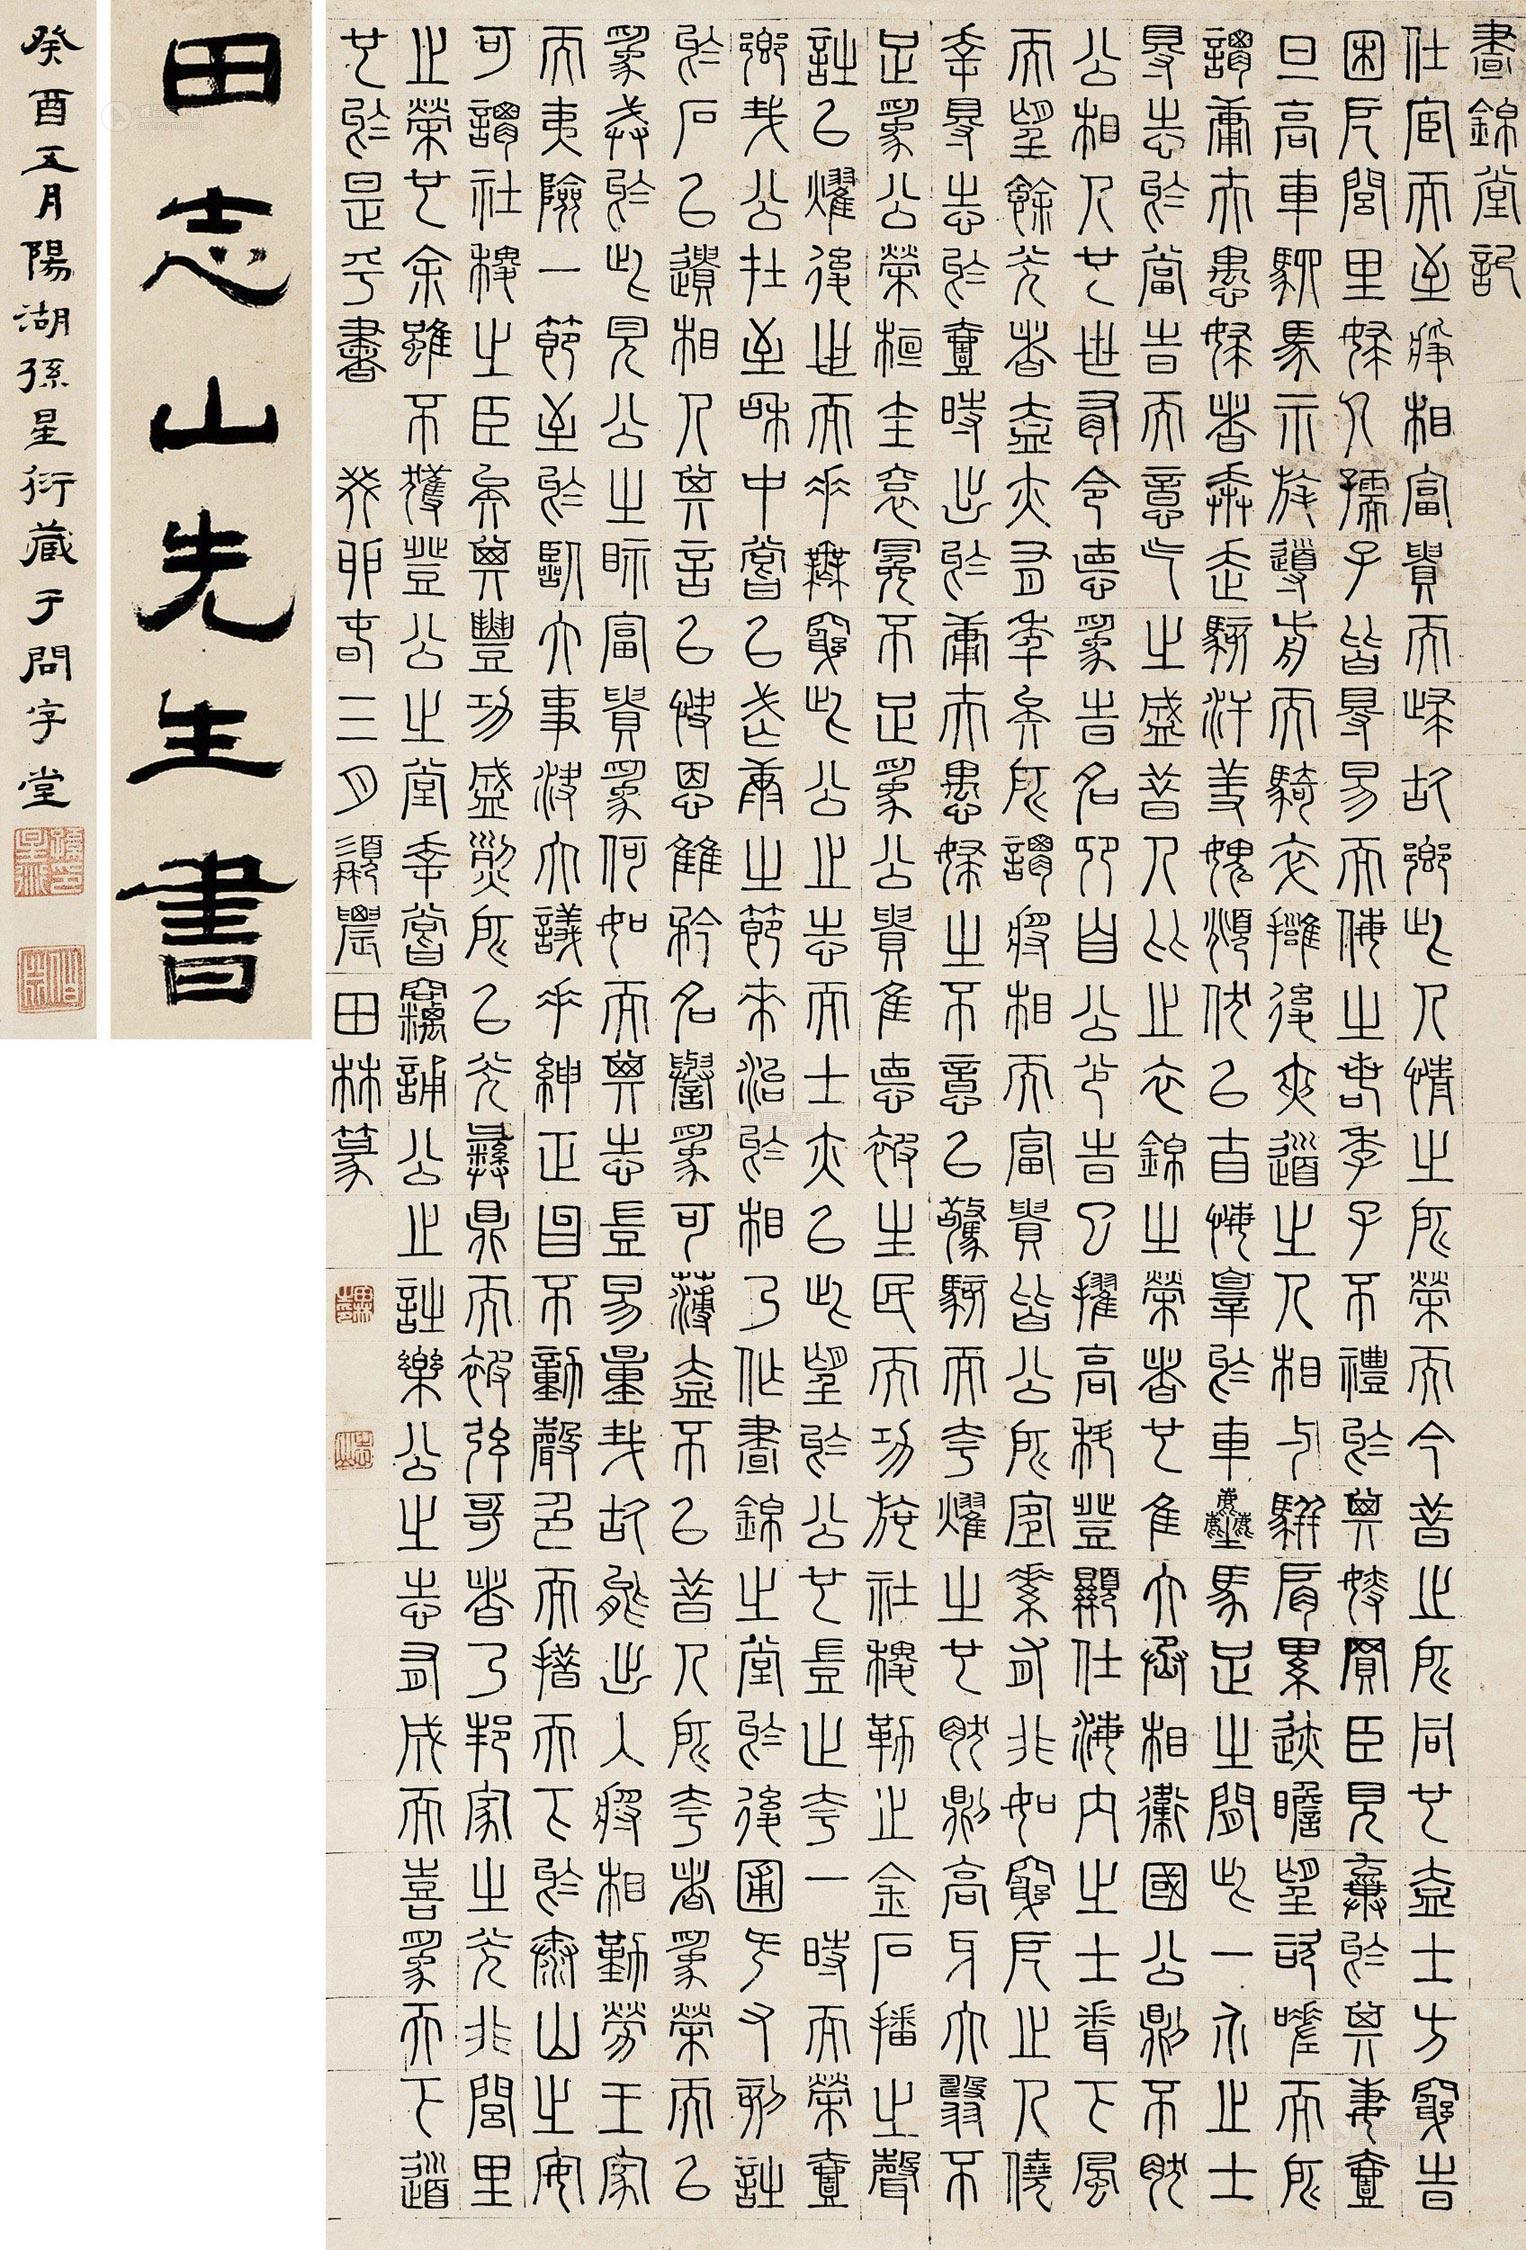 晝錦堂記
仕宦而至將相富貴而歸故鄉此人情之所榮而今昔之所同也蓋士方窮時
困阨閭里庸人孺子皆得易而侮之若季子不禮於其嫂買臣見棄於其妻壹
旦高車駟馬旗旄導前而騎卒擁後夾道之人相与駢肩累迹瞻望咨嗟而所
謂庸夫愚婦者奔走駭汗羞愧俯伏以自悔辠於車塵馬足之間此一介之士
得志於當時而意气之盛昔人比之衣錦之榮者也惟大丞相衛國公則不然
公相人也世有令德為時名卿自公少時已擢高科登顯仕海內之士聞下風
而望餘光者蓋亦有年矣所謂將相而富貴皆公所宜素有非如窮阨之人僥
幸得志於壹時出於庸夫愚婦之不意以驚駭而夸耀之也然則高牙大纛不
足為公榮桓圭袞冕不足為公貴惟德被生民而功施社稷勒之金石播之聲
詩以耀後世而垂無窮此公之志而士亦以此望於公也豈止夸一時而榮壹
鄉哉公在至和中嘗以武康之節來治於相乃作晝錦之堂於後圃既又刻詩
於石以遺相人其言以快恩讎矜名譽為可薄蓋不以昔人所夸者為榮而以
為戒於此見公之視富貴為何如而其志豈易量哉故能出入將相勤勞王家
而夷險一節至於臨大事決大議垂紳正笏不動聲色而措天下於泰山之安
可謂社稷之臣矣其豐功盛烈所以光彝鼎而被弦哥者乃邦家之光非閭里
之榮也余雖不獲登公之堂幸嘗竊誦公之詩樂公之志有成而喜為天下道
也於是乎書 癸卯春三月髯農田林篆
田志山先生書
癸酉五月陽湖孫星衍藏于問字堂